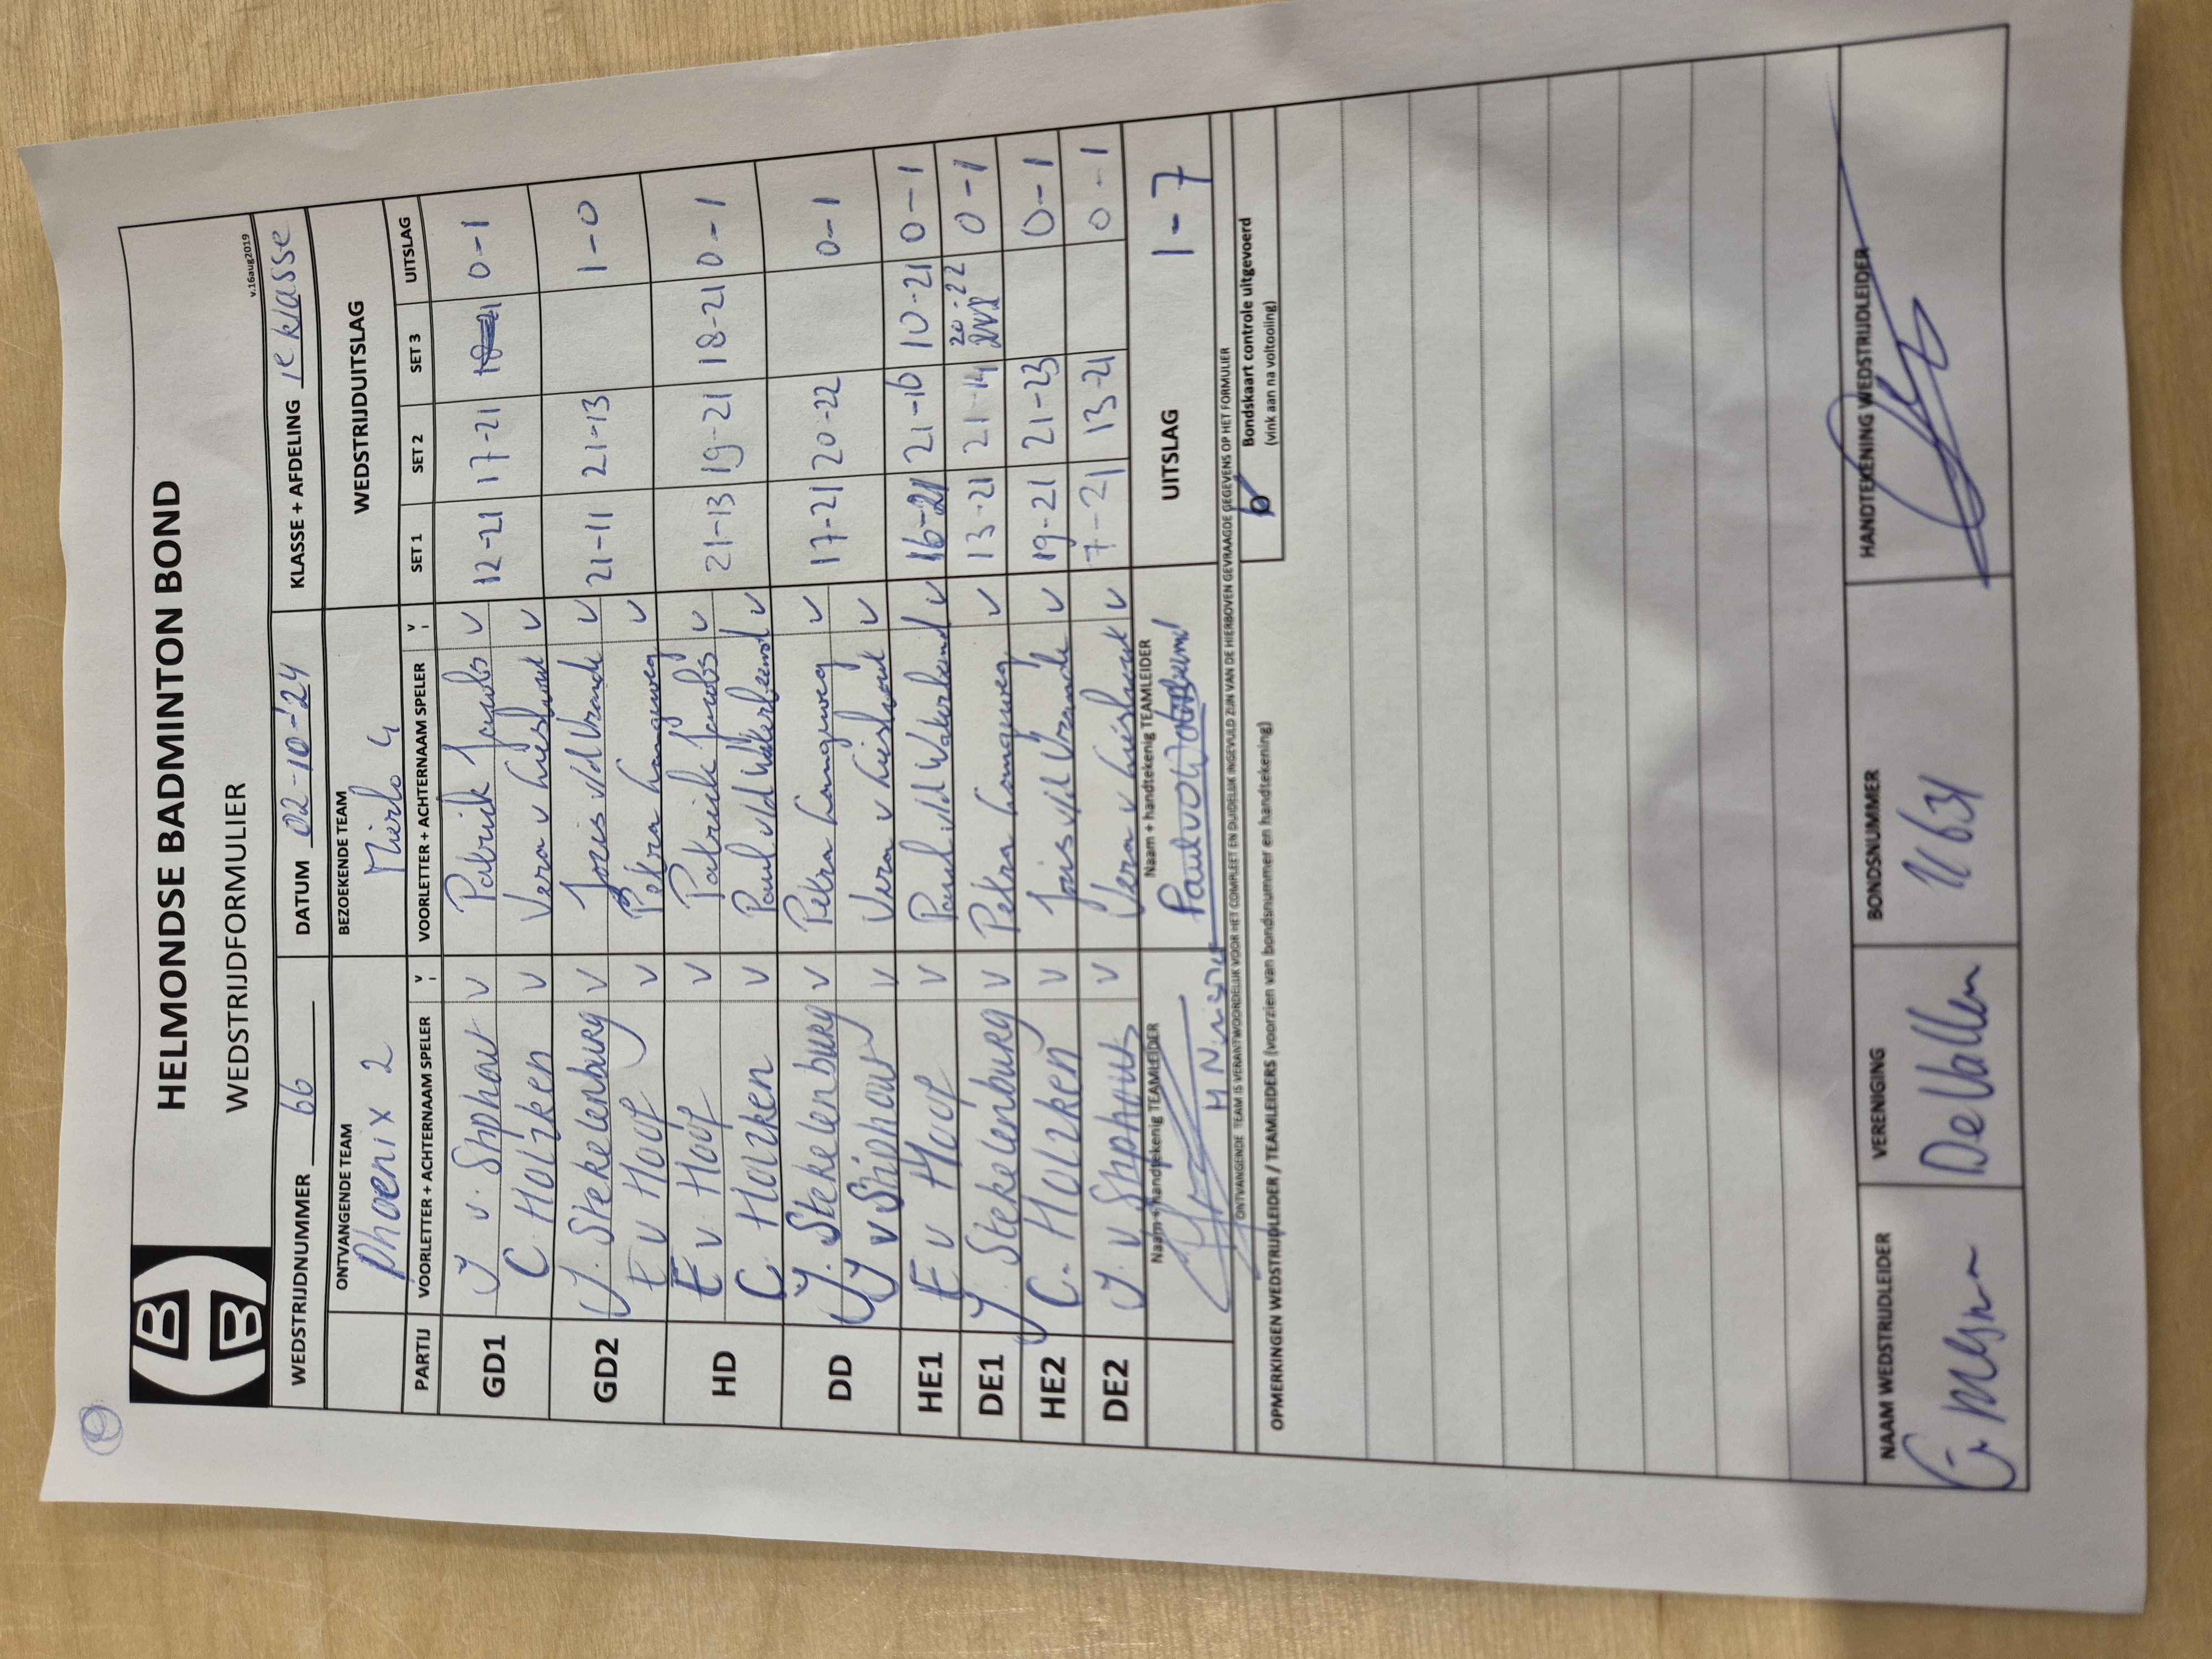 HELMONDSE BADMINTON BOND
WEDSTRIJDFORMULIER
v.16aug2019
WEDSTRIJDNUMMER 66 DATUM 02-10-'24 KLASSE + AFDELING 1e klasse
ONTVANGENDE TEAM BEZOEKENDE TEAM WEDSTRIJDUITSLAG
Phoenix 2 Mierlo 4
PARTIJ VOORLETTER + ACHTERNAAM SPELER V VOORLETTER + ACHTERNAAM SPELER V SET 1 SET 2 SET 3 UITSLAG
GD1 Y v. Stiphout v Patrick Jacobs v 12-21 17-21 0-1
C Holzken v Vera v Lieshout v
GD2 Y. Stekelenburg v Joris v/d Vrande v 21-11 21-13 1-0
E v Hoof v Petra Langeweg v
HD E v Hoof v Patrick Jacobs v 21-13 19-21 18-21 0-1
C Holzken v Paul v/d Wakerbeemd v
DD Y. Stekelenburg v Petra Langeweg v 17-21 20-22 0-1
Y v Stiphout v Vera v Lieshout v
HE1 E v Hoof v Paul v/d Wakerbeemd v 16-21 21-16 10-21 0-1
DE1 Y. Stekelenburg v Petra Langeweg v 13-21 21-14 20-22 0-1
HE2 C. Holzken v Joris v/d Vrande v 19-21 21-23 0-1
DE2 Y. v Stiphout v Vera v Lieshout v 7-21 13-21 0-1
Naam + handtekenig TEAMLEIDER Naam + handtekenig TEAMLEIDER UITSLAG 1-7
Paul
ONTVANGENDE TEAM IS VERANTWOORDELIJK VOOR HET COMPLEET EN DUIDELIJK INGEVULD ZIJN VAN DE HIERBOVEN GEVRAAGDE GEGEVENS OP HET FORMULIER
OPMERKINGEN WEDSTRIJDLEIDER / TEAMLEIDERS (voorzien van bondsnummer en handtekening)
Bondskaart controle uitgevoerd
(vink aan na voltooiing)
NAAM WEDSTRIJDLEIDER VERENIGING BONDSNUMMER HANDTEKENING WEDSTRIJDLEIDER
De Vallen 11631